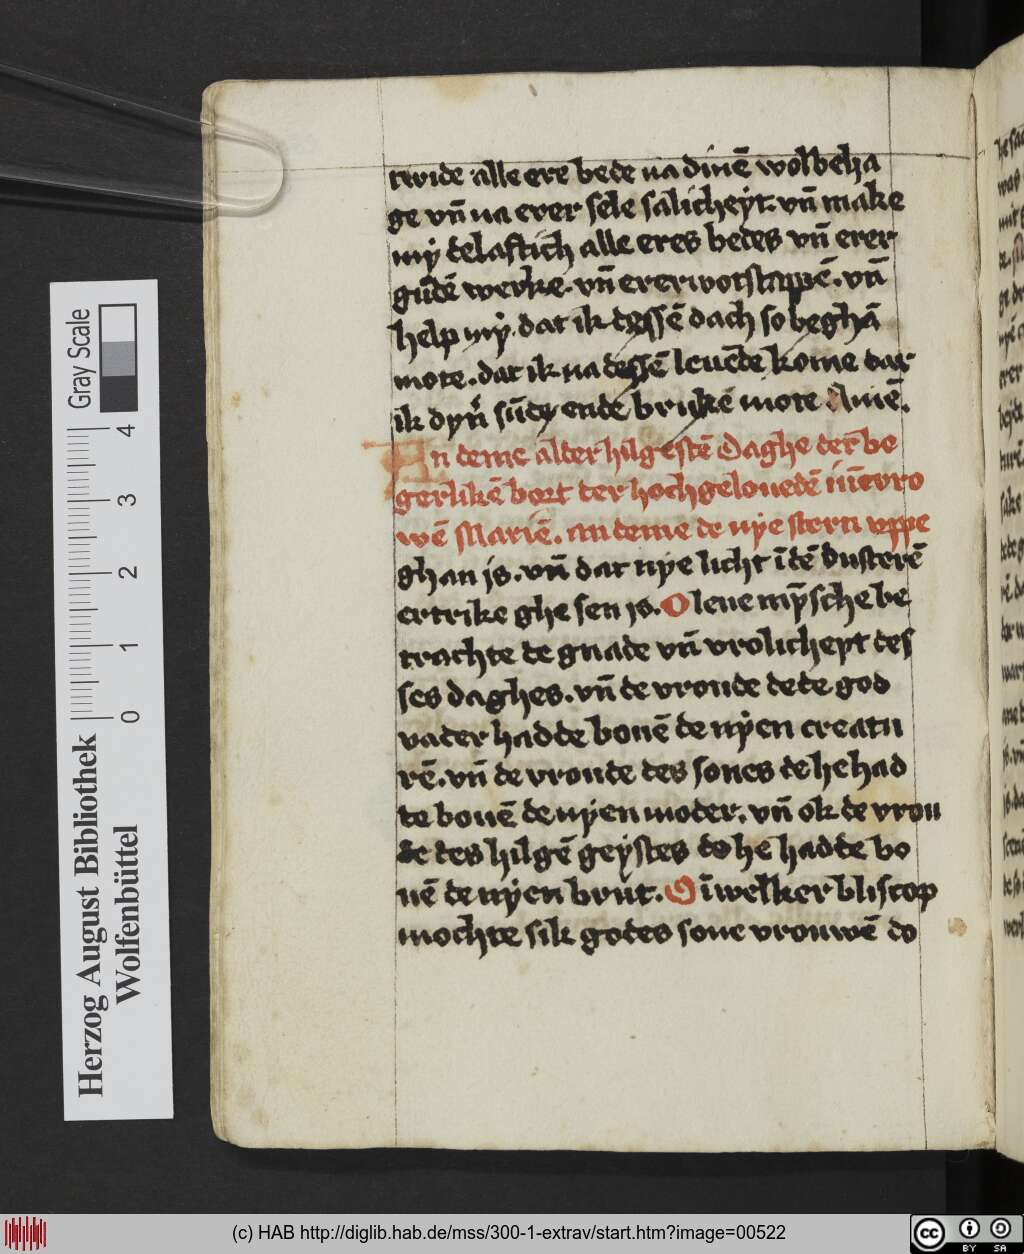 twide alle ere bede na dinē wolbeha
ge vn̄ na erer sele salicheyt. vn̄ make
mÿ delaftich alle eres bedes vn̄ erer
gudē werke. vn̄ erer votstappē. vn̄
help mÿ. dat ik dessē dach so beghā
mote. dat ik na dessē leuēde kome dar
ik dyn̄ sūd ende brukē mote Amē.
An deme alder hilgestē daghe der be
gerlikē bort der hochgelouedē iūcvro
wē Mariē. an deme de nye stern vppe
ghan is. vn̄ dat nye licht ī dē dusterē
ertrike ghe sen is. O leue mȳsche be
trachte de gnade vn̄ vrolicheyt des
ses daghes. vn̄ de vroude de de god
vader hadde bouē de nÿen creatu
rē. vn̄ de vroude des sones de he had
de bouē de nÿen moder. vn̄ ok de vrou
de des hilgē geÿstes do he hadde bo
uē de nÿen brut. O ī welker bliscop
mochte sik godes sone vrouwē do
Herzog August Bibliothek
Wolfenbüttel
0 1 2 3 4
Gray Scale
(c) HAB http://diglib.hab.de/mss/300-1-extrav/start.htm?image=00522
cc BY SA